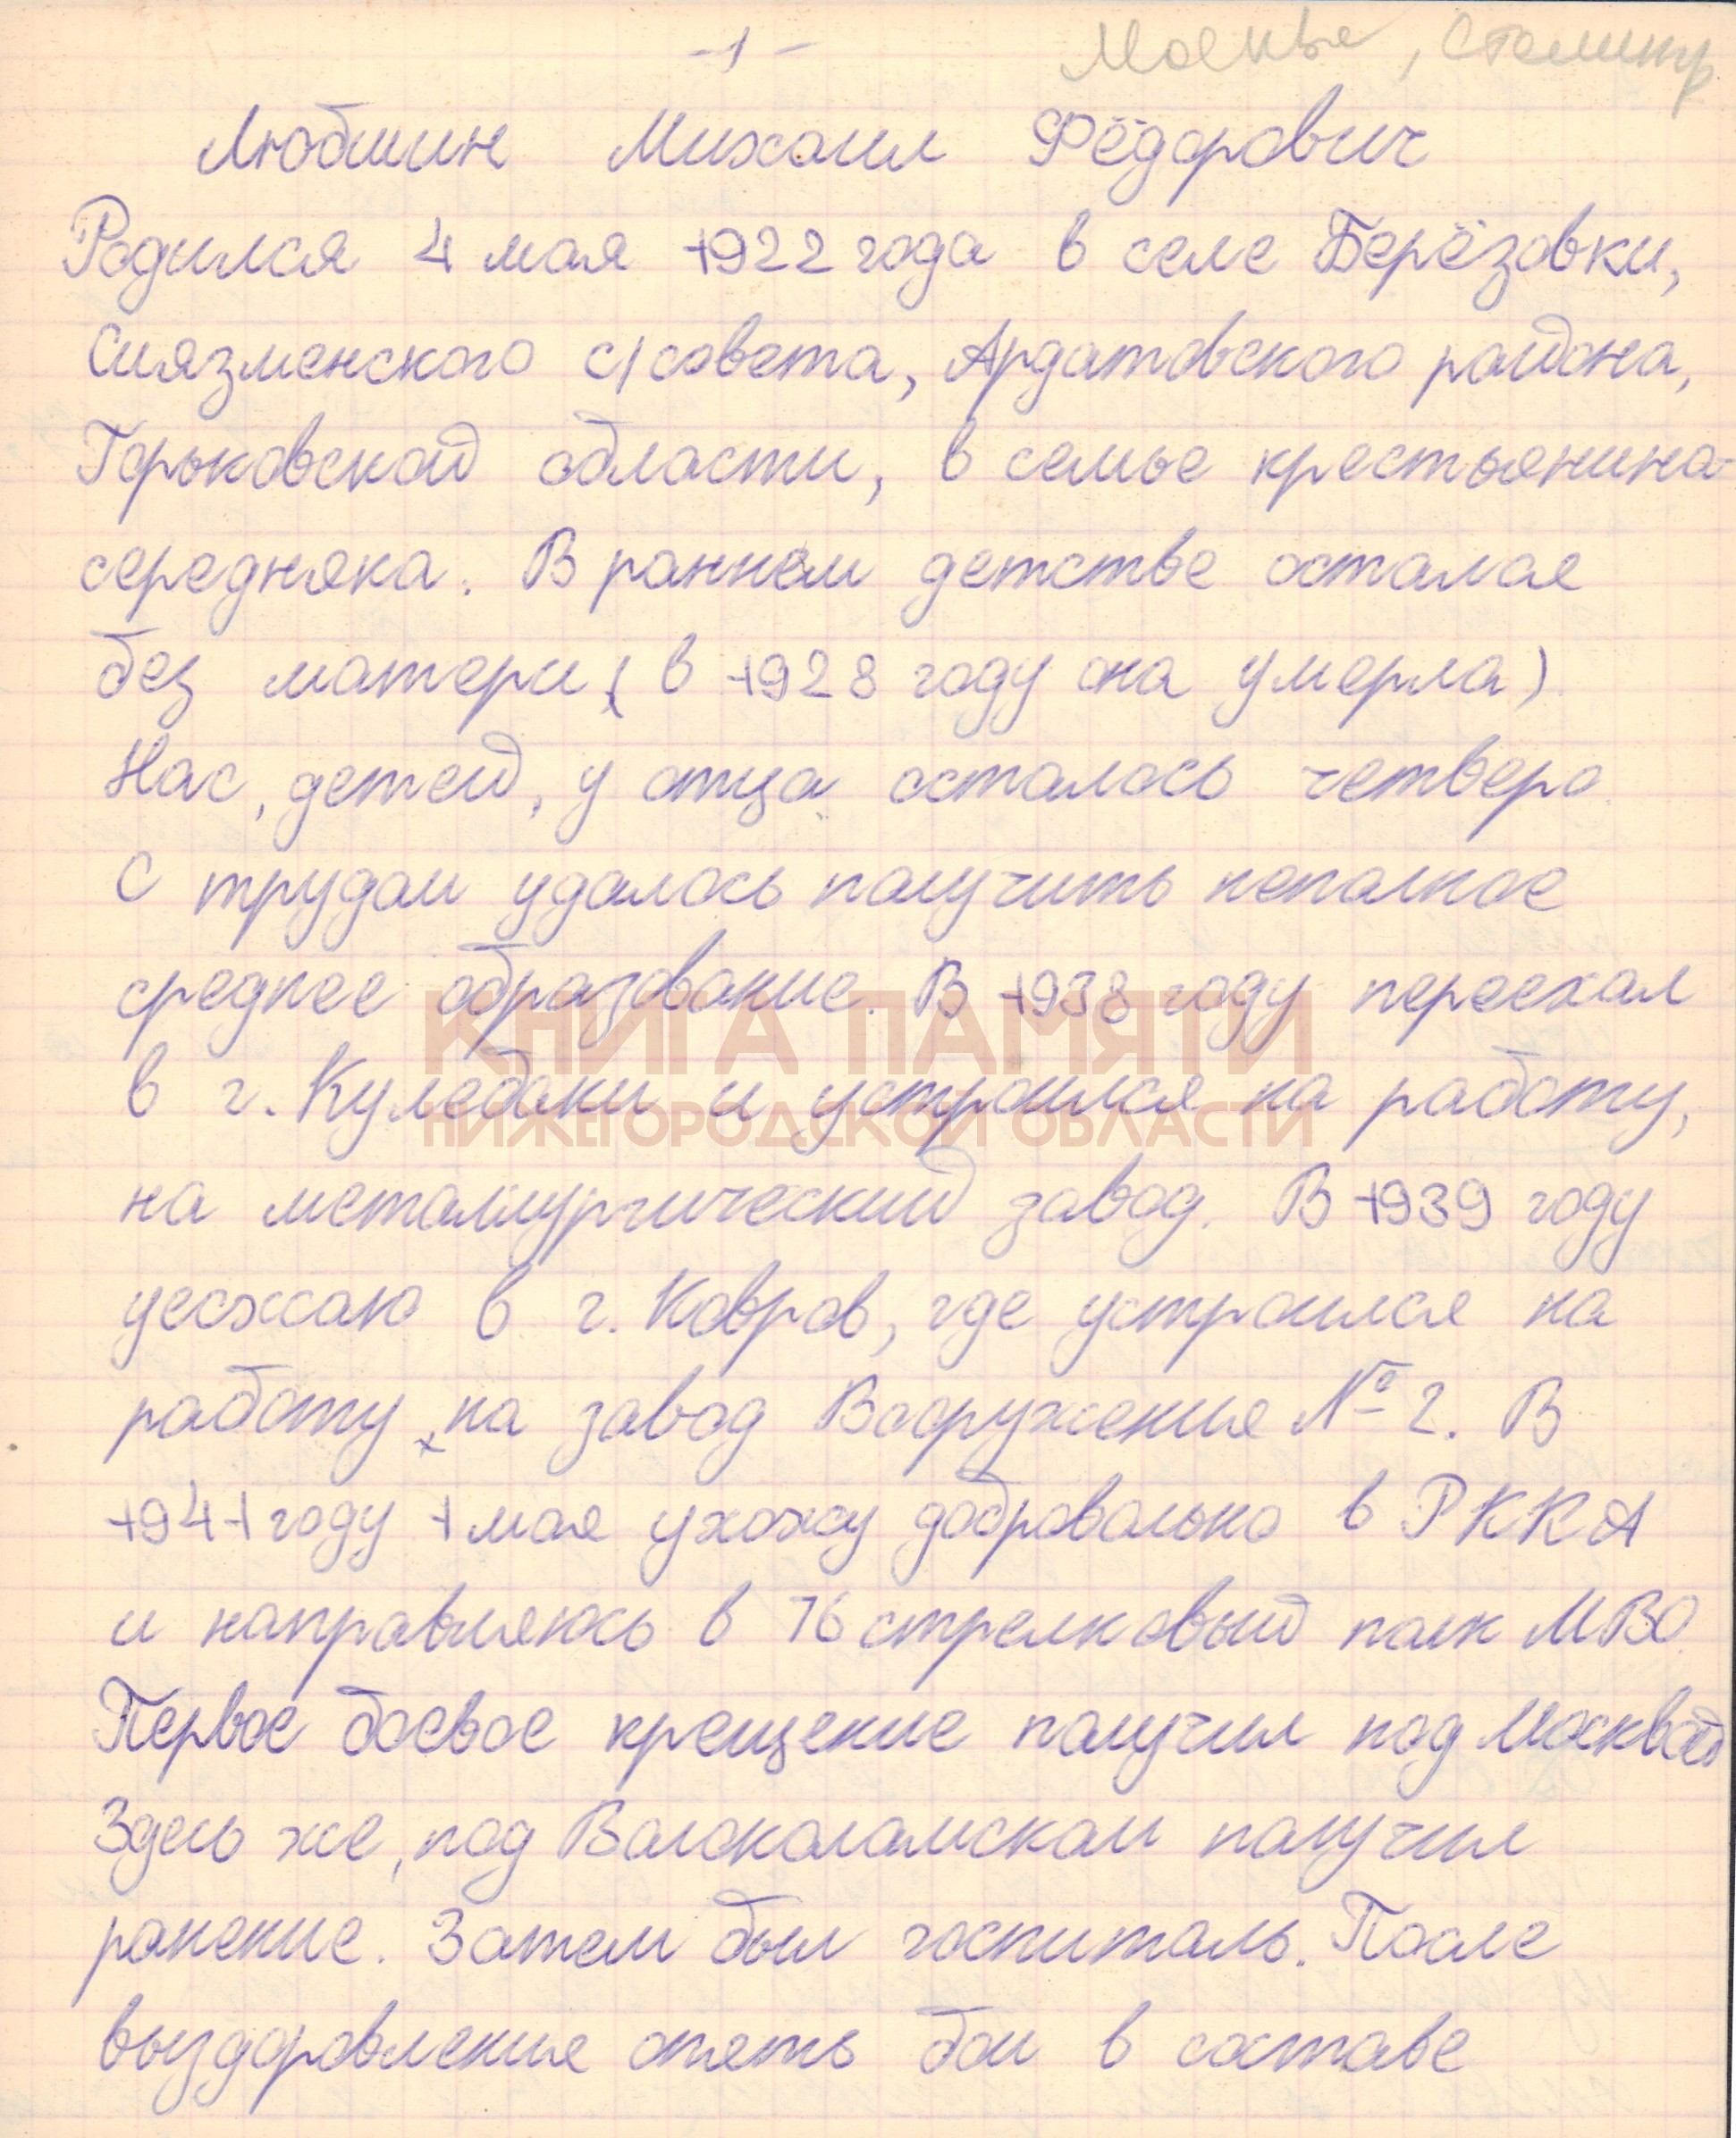 -1-
Москва, Сталингр
Любшин Михаил Фёдорович
Родился 4 мая 1922 года в селе Берёзовки,
Сиязменского с/совета, Ардатовского района,
Горьковской области, в семье крестьянина-
середняка. В раннем детстве остался
без матери (в 1928 году она умерла).
Нас, детей, у отца осталось четверо.
С трудом удалось получить неполное
среднее образование. В 1938 году переехал
КНИГА ПАМЯТИ
в г. Кулебаки и устроился на работу,
НИЖЕГОРОДСКОЙ ОБЛАСТИ
на металлургический завод. В 1939 году
уезжаю в г. Ковров, где устроился на
работу на завод Вооружения № 2. В
1941 году 1 мая ухожу добровольно в РККА
и направляюсь в 76 стрелковый полк МВО.
Первое боевое крещение получил под Москвой
Здесь же, под Волоколамском получил
ранение. Затем был госпиталь. После
выздоровления опять бои в составе